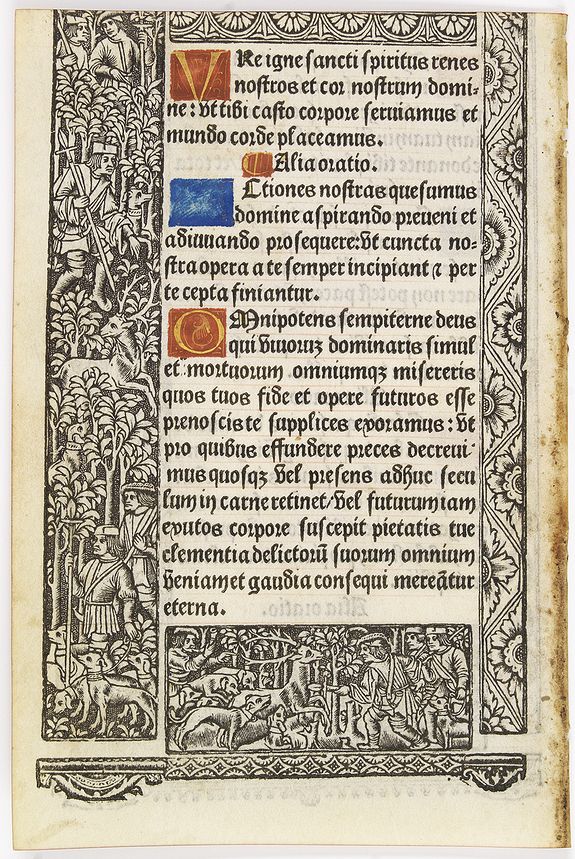 VRe igne sancti spiritus renes
nostros et cor nostrum domi-
ne: vt tibi casto corpore seruiamus et
mundo corde placeamus.
Alia oratio.
Ctiones nostras quesumus
domine aspirando preueni et
adiuuando prosequere: vt cuncta no-
stra opera a te semper incipiant ⁊ per
te cepta finiantur.
OMnipotens sempiterne deus
qui viuoruꝫ dominaris simul
et mortuorum omniumqꝫ misereris
quos tuos fide et opere futuros esse
prenoscis te supplices exoramus: vt
pro quibus effundere preces decreui-
mus quosqꝫ vel presens adhuc secu
lum in carne retinet/vel futurum iam
exutos corpore suscepit pietatis tue
clementia delictorū suorum omnium
veniam et gaudia consequi mereātur
eterna.